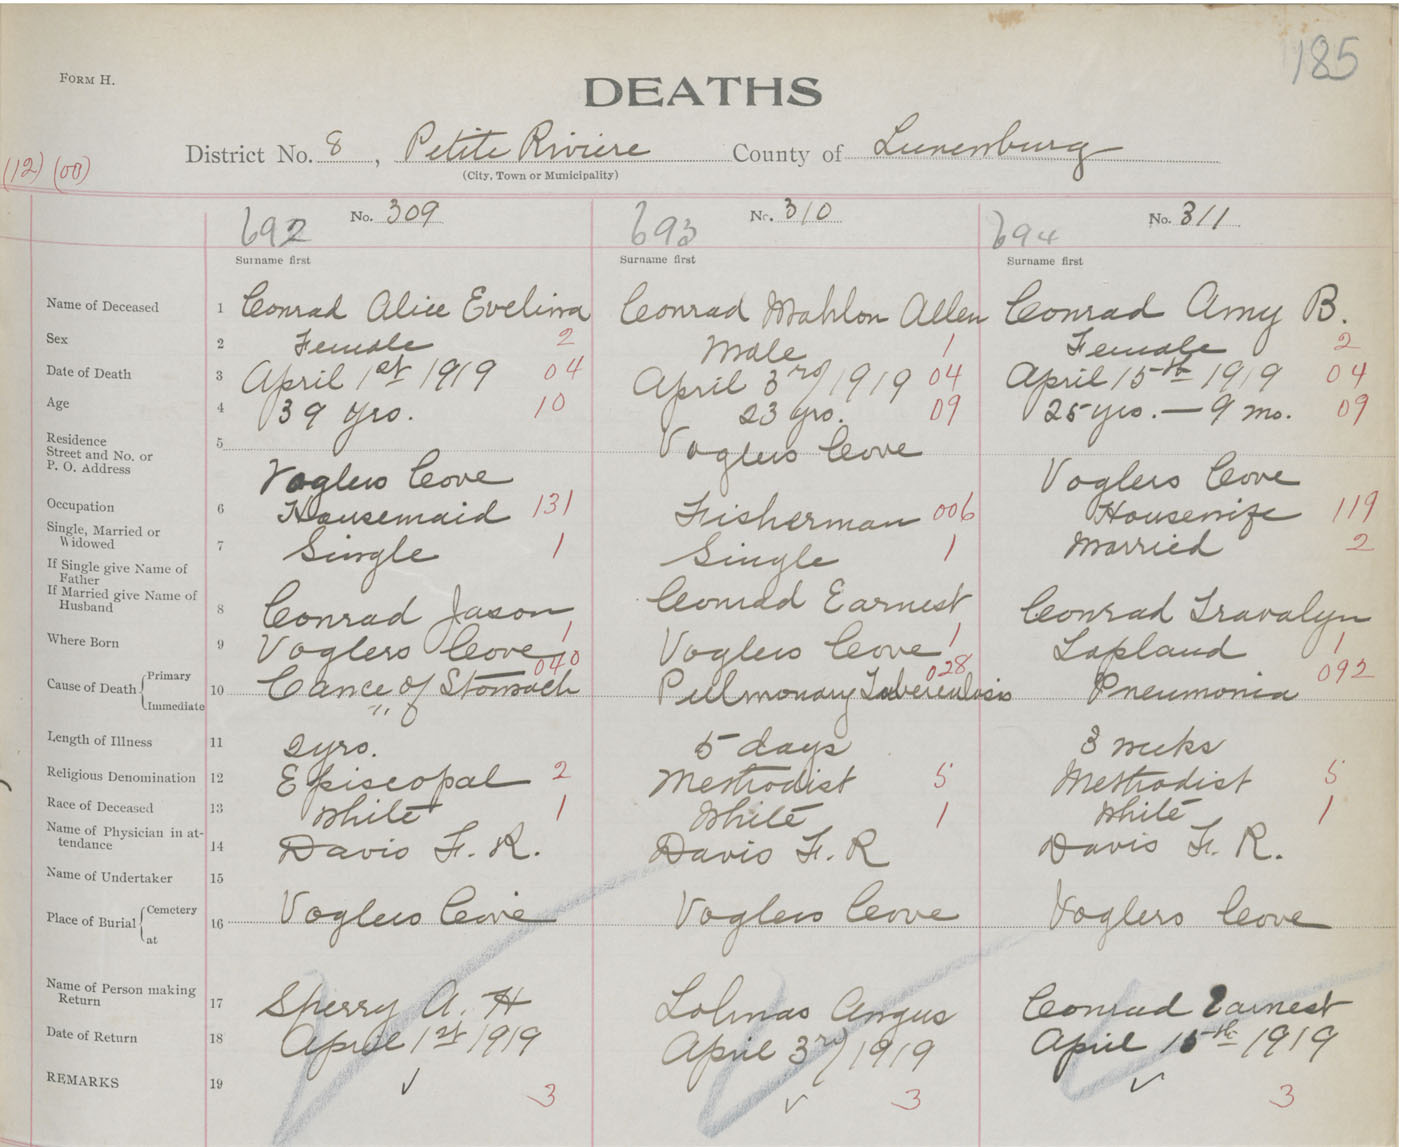 185
FORM H.
DEATHS
District No. 8, Petite Riviere County of Lunenburg
(City, Town or Municipality)
(12) (00)
692 No. 309 693 No. 310 694 No. 311
Surname first Surname first Surname first
Name of Deceased 1 Conrad Alice Evelina Conrad Mahlon Allen Conrad Amy B.
Sex 2 Female 2 Male 1 Female 2
Date of Death 3 April 1st 1919 04 April 3rd/1919 04 April 15th 1919 04
Age 4 39 yrs. 10 23 yrs. 09 25 yrs. — 9 mo. 09
Residence
Street and No. or
P. O. Address 5 Voglers Cove Voglers Cove Voglers Cove
Occupation 6 Housemaid 131 Fisherman 006 Housewife 119
Single, Married or
Widowed 7 Single 1 Single 1 Married 2
If Single give Name of
Father
If Married give Name of
Husband 8 Conrad Jason Conrad Earnest Conrad Travalyn
Where Born 9 Voglers Cove 1 Voglers Cove 1 Lapland 1
Cause of Death { Primary 040 028 092
Immediate 10 Cance of Stomach Pullmonary Tuberculosis Pneumonia
" "
Length of Illness 11 2 yrs. 5 days 3 weeks
Religious Denomination 12 Episcopal 2 Methodist 5 Methodist 5
Race of Deceased 13 White 1 White 1 White 1
Name of Physician in at-
tendance 14 Davis F. R. Davis F. R Davis F. R.
Name of Undertaker 15
Place of Burial { Cemetery
at 16 Voglers Cove Voglers Cove Voglers Cove
Name of Person making
Return 17 Sperry A. H Lohnas Angus Conrad Earnest
Date of Return 18 April 1st 1919 April 3rd/1919 April 15th 1919
REMARKS 19 ✓ 3 ✓ 3 ✓ 3